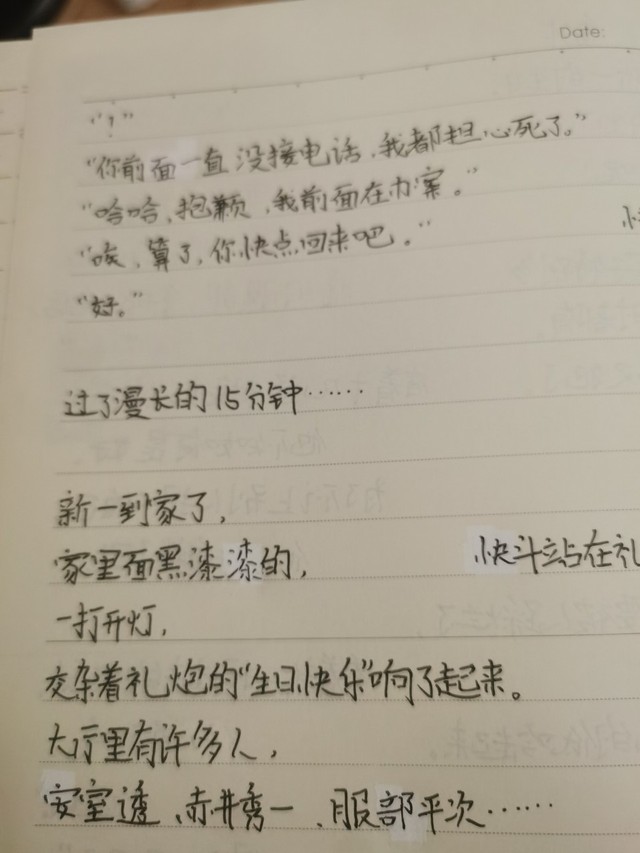 Date:
“？”
“你前面一直没接电话，我都担心死了。”
“哈哈，抱歉，我前面在办案。”
“唉，算了，你快点回来吧。”
“好。”
过了漫长的15分钟……
新一到家了，
家里面黑漆漆的， 快斗站在礼
一打开灯，
交杂着礼炮的“生日快乐”响了起来。
大厅里有许多人，
安室透、赤井秀一、服部平次……